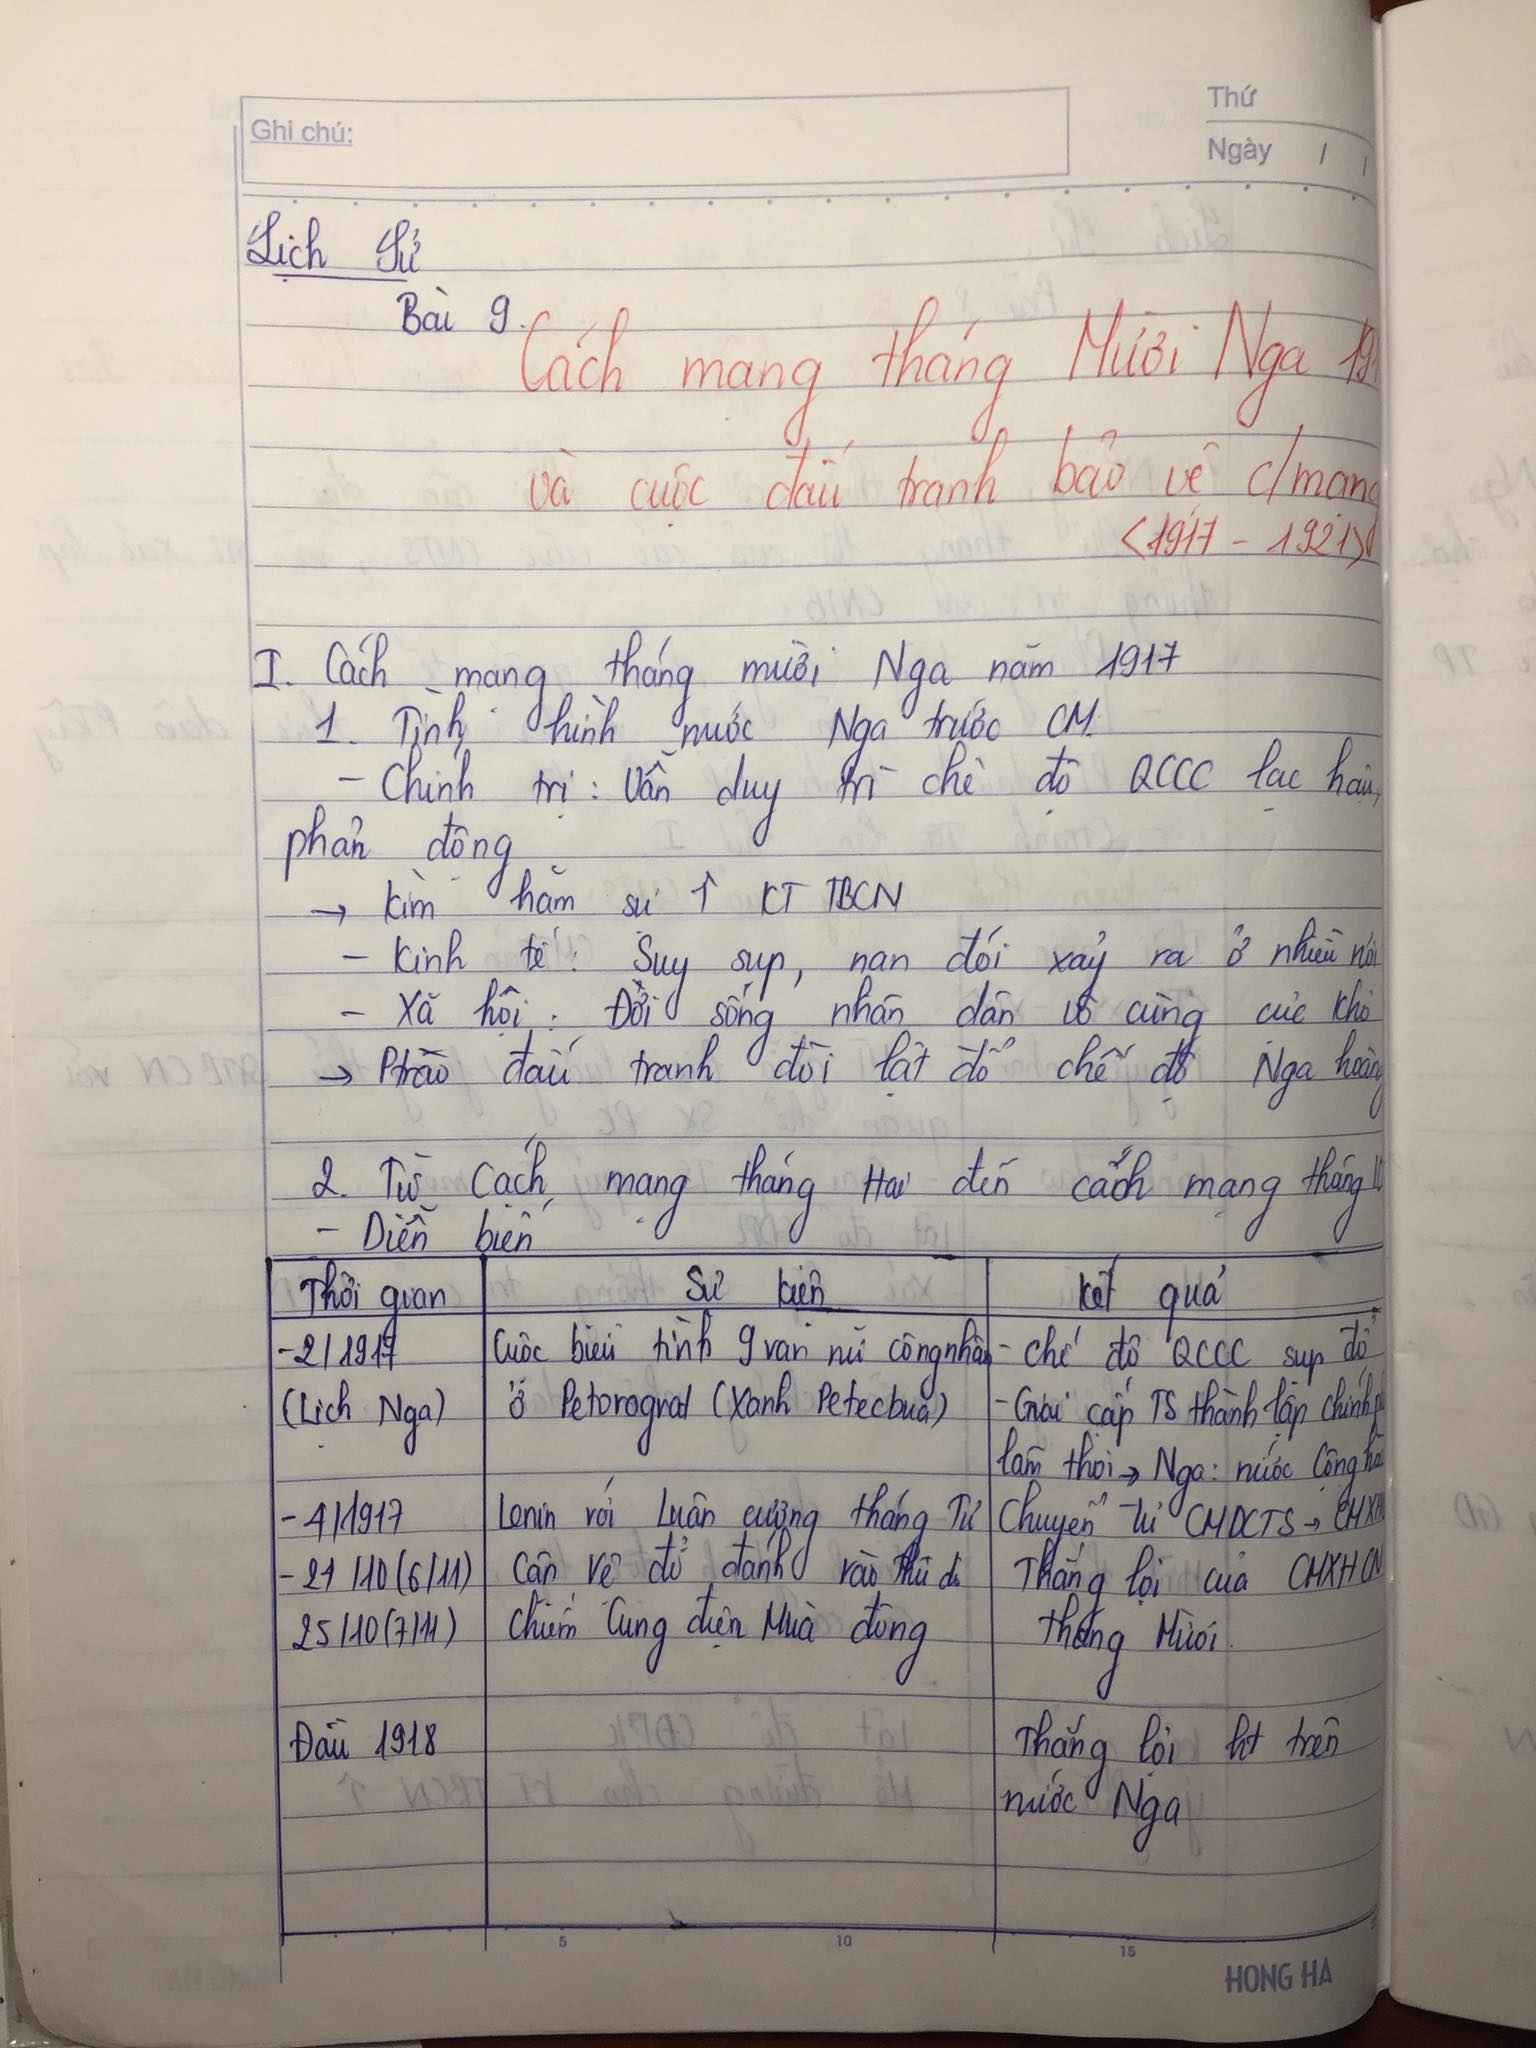 Ghi chú:
Thứ
Ngày / /
Lịch Sử
Bài 9.
Cách mạng tháng Mười Nga 19
và cuộc đấu tranh bảo vệ c/mạng
<1917 - 1921>
I. Cách mạng tháng mười Nga năm 1917
1. Tình hình nước Nga trước CM.
- Chính trị : Vẫn duy trì chế độ QCCC lạc hậu,
phản động
→ Kìm hãm sự ↑ KT TBCN
- Kinh tế : Suy sụp, nạn đói xảy ra ở nhiều nơi
- Xã hội : Đời sống nhân dân vô cùng cực khổ
→ Ptrào đấu tranh đòi lật đổ chế độ Nga hoàng
2. Từ Cách mạng tháng Hai đến cách mạng tháng
- Diễn biến
Thời gian Sự kiện Kết quả
- 2/1917 Cuộc biểu tình 9 vạn nữ công nhân - Chế độ QCCC sụp đổ
(Lịch Nga) ở Petorograt (Xanh Petecbua) - Giai cấp TS thành lập chính
lâm thời → Nga : nước Cộng hòa
- 4/1917 Lenin với Luận cương tháng Tư Chuyển từ CMDCTS → CMXH
- 24/10 (6/11) Cận vệ đỏ đánh vào thủ đô Thắng lợi của CMXHCN
25/10 (7/11) Chiếm Cung điện Mùa đông tháng Mười.
Đầu 1918 Thắng lợi ht trên
nước Nga
5 10 15
HONG HA